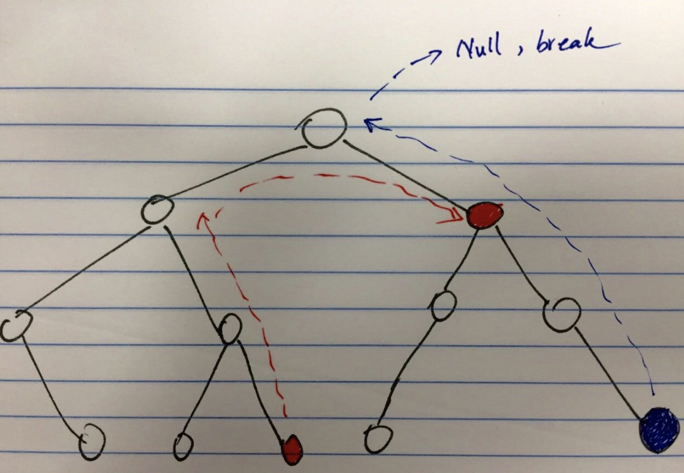 Null, break